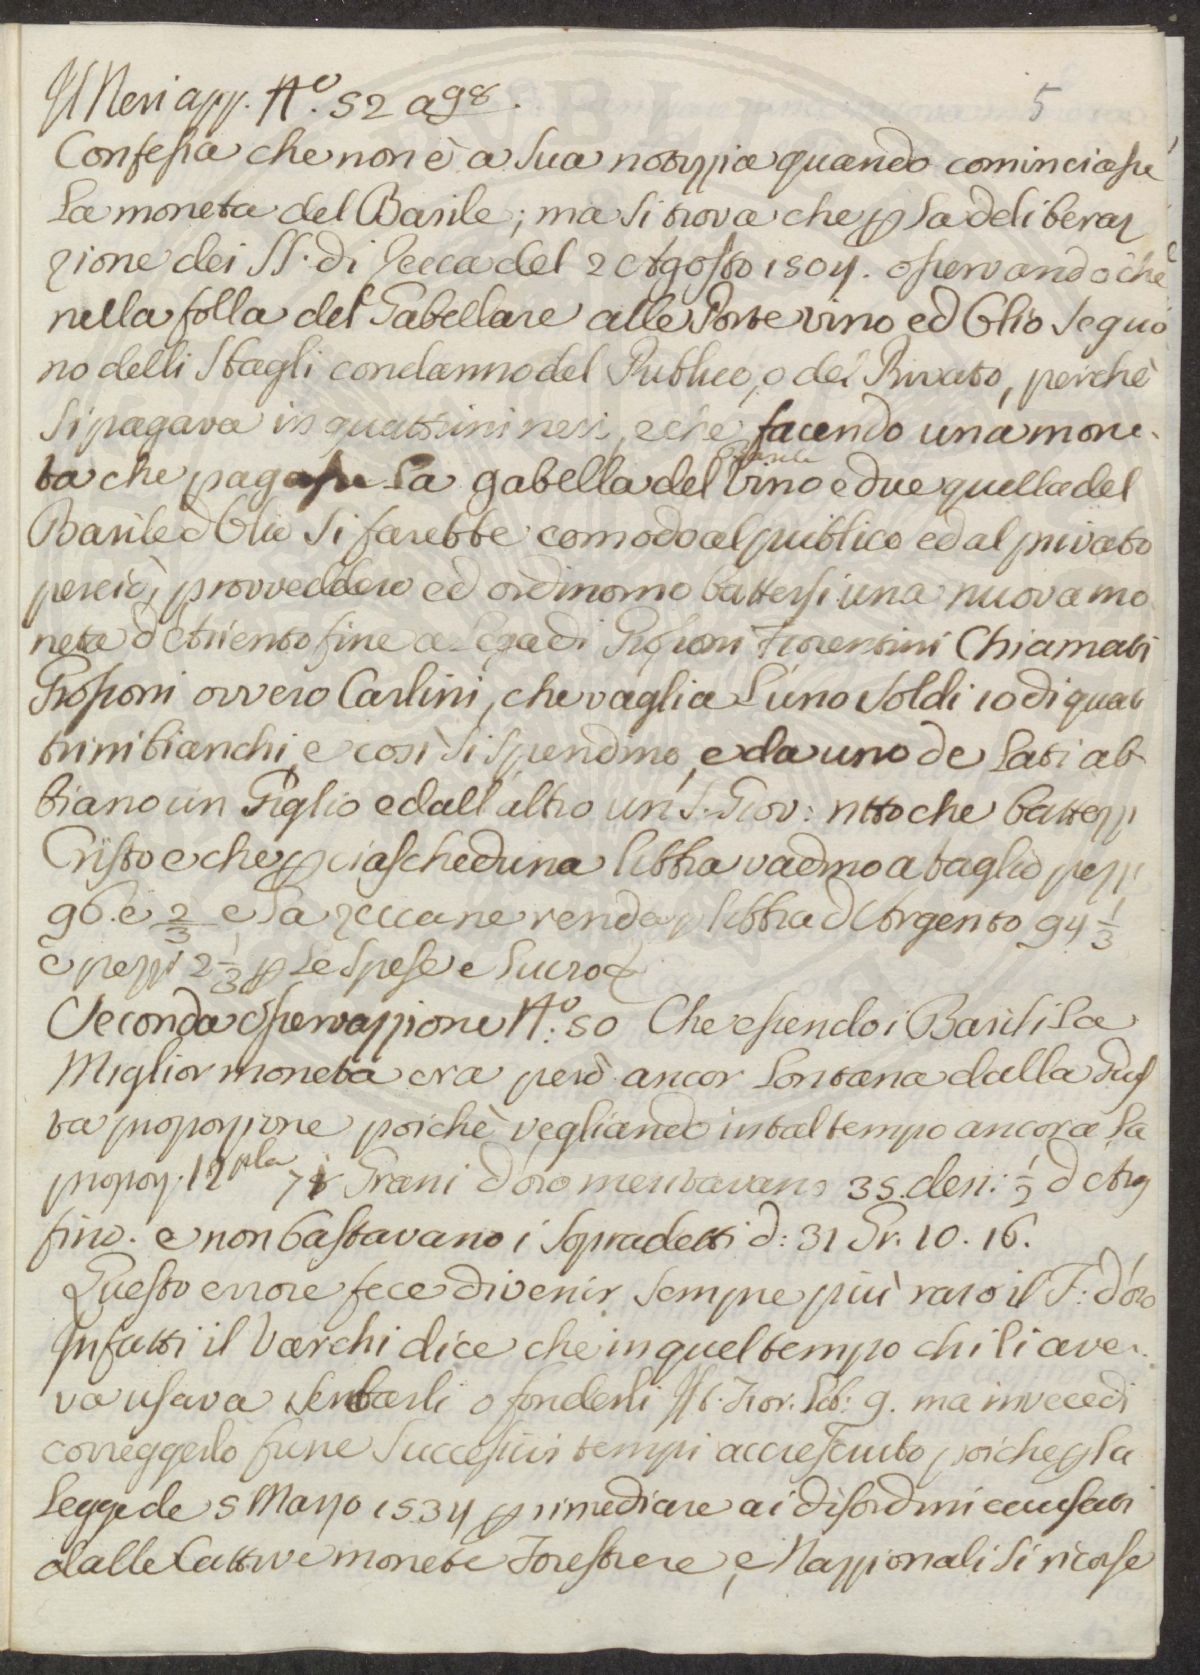 Il Neri app. N.º 52 a 98.
5
Confessa che non è a sua notizzia quando cominciasse
la moneta del Barile; ma si trova che p la delibera
zione dei SS. di Zecca del 2 Agosto 1504. osservando che
nella folla del Gabellare alle Porte vino ed Olio seguo
no delli Sbagli con danno del Publico, o del Privato, perchè
si pagava in quattrini neri, e che facendo una mone
ta che pagasse la gabella del vino e due quella del
Barile
Barile d Olio si farebbe comodo al publico ed al privato
perciò, provveddero ed ordinorno battersi una nuova mo
neta d Ariento fine a Lega di Grossoni Fiorentini Chiamati
Grossoni ovvero Carlini, che vaglia l'uno soldi 10 di quat
trini bianchi, e così si spendino, e da uno de lati ab
biano un Giglio e dall altro un S. Giov: ritto che battezzi
Cristo e che p ciascheduna libbra vadino a taglio pezzi
96. e 2/3 e la zecca ne renda p libbra d Argento 94 1/3
e pezzi 2 1/3 p le spese e lucro
Seconda osservazzione N.º 50 Che essendo i Barili la
Miglior moneta era però ancor lontana dalla Gius
ta proporzione poichè vegliando in tal tempo ancora la
propoz. 12pla 72 Grani d'oro meritavano 35. den: 1/2 d Arg
fino. e non bastavano i sopradetti d: 31 Gr. 10. 16.
Questo errore fece divenir sempre più raro il F: d'oro
Infatti il Varchi dice che in quel tempo chi li ave
va usava serbarli o fonderli Ist. Fior. Lib: 9. ma invece di
correggerlo fù ne successivi tempi accresciuto poiche p la
Legge de 5 Marzo 1534 p rimediare ai disordini causati
dalle Cattive monete Forestiere, e Nazzionali si ricorse